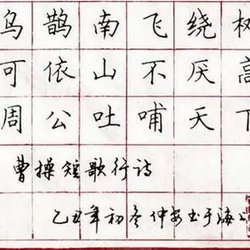 乌鹊南飞绕树
可依山不厌高
周公吐哺天下
曹操短歌行诗
乙丑年初冬仲安玉于海上